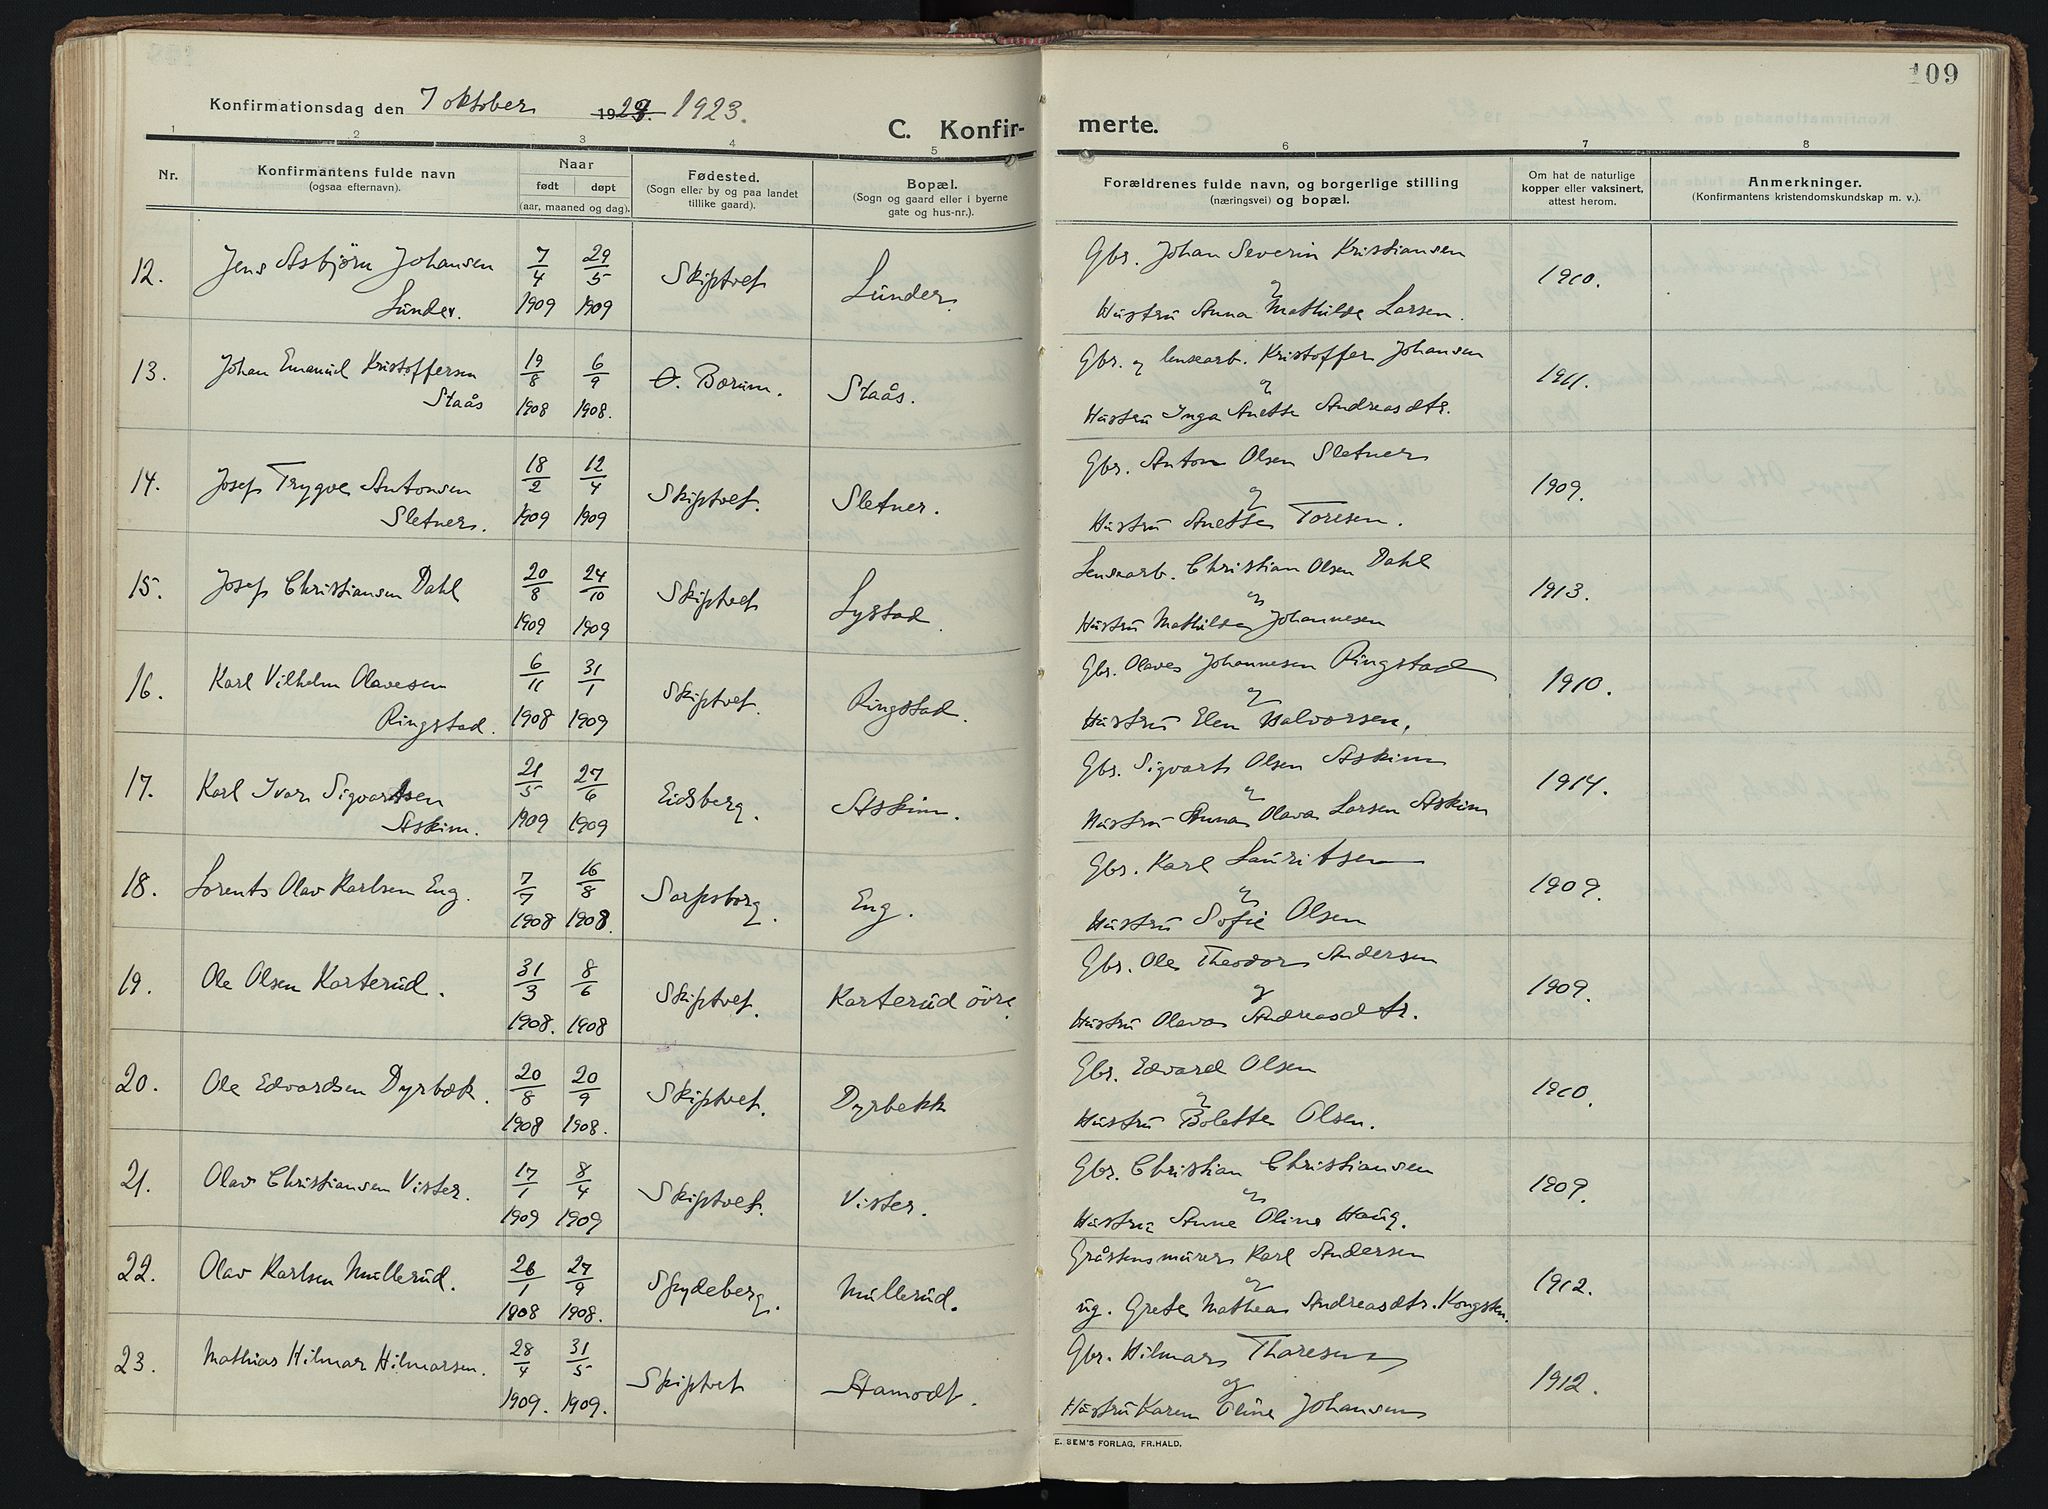 109
Konfirmationsdag den 7 oktober 1921. 1923.
C. Konfirmerte.
1 2 3 4 5 6 7 8
Nr. Konfirmantens fulde navn (ogsaa efternavn). Naar født døpt (aar, maaned og dag). Fødested. (Sogn eller by og paa landet tillike gaard). Bopæl. (Sogn og gaard eller i byerne gate og hus-nr.). Forældrenes fulde navn, og borgerlige stilling (næringsvei) og bopæl. Om hat de naturlige kopper eller vaksinert, attest herom. Anmerkninger. (Konfirmantens kristendomskundskap m. v.).
12. Jens Asbjørn Johansen 7/4 29/5 Skiptvet Lunder. Gbr. Johan Severin Kristiansen 1910.
Lunder. 1909 1909 og Hustru Anna Mathilde Larsen.
13. Johan Emanuel Kristoffersen 19/8 6/9 Ø. Bærum. Staås. Gbr. og lensearb. Kristoffer Johansen 1911.
Staås 1908 1908. og Hustru Inga Anette Andreasdtr.
14. Josef Trygve Antonsen 18/2 12/4 Skiptvet. Sletner. Gbr. Anton Olsen Sletner 1909.
Sletner. 1909 1909 og Hustru Anette Toresen.
15. Josef Christiansen Dahl 20/8 24/10 Skiptvet Lystad. Lensearb. Christian Olsen Dahl 1913.
1909 1909 og Hustru Mathilde Johannesen
16. Karl Vilhelm Olavesen 6/11 31/1 Skiptvet. Ringstad. Gbr. Olaves Johannesen Ringstad 1910.
Ringstad. 1908 1909 og Hustru Elen Halvorsen.
17. Karl Ivar Sigvartsen 21/5 27/6 Eidsberg. Askim. Gbr. Sigvart Olsen Askim 1914.
Askim. 1909 1909 og Hustru Anna Olava Larsen Askim
18. Lorents Olav Karlsen Eng. 7/7 16/8 Sarpsborg. Eng. Gbr. Karl Lauritsen 1909.
1908 1908. og Hustru Sofie Olsen
19. Ole Olsen Karterud. 31/3 8/6 Skiptvet. Karterud övre Gbr. Ole Theodor Andersen 1909.
1908. 1908 og Hustru Olava Andreasdtr.
20. Ole Edvardsen Dyrbæk. 20/8 20/9 Skiptvet. Dyrbekk Gbr. Edvard Olsen 1910.
1908 1908. og Hustru Bolette Olsen.
21. Olav Christiansen Vister. 17/1 8/4 Skiptvet. Vister. Gbr. Christian Christiansen 1909.
1909 1909 og Hustru Anne Oline Haug.
22. Olav Karlsen Mullerud. 26/1 27/9 Spydeberg. Mullerud. Gråstensmurer Karl Andersen 1912.
1908 1908. og ug. Grete Mathea Andreasdtr. Kongsten.
23. Mathias Hilmar Hilmarsen. 28/4 31/5 Skiptvet Stamodt. Gbr. Hilmar Thoresen 1912.
1909. 1909. og Hustru Karen Eline Johansen
E. SEM'S FORLAG, FR.HALD.